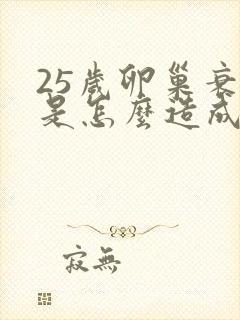 25歲卵巢衰
是怎麼造成
寂無